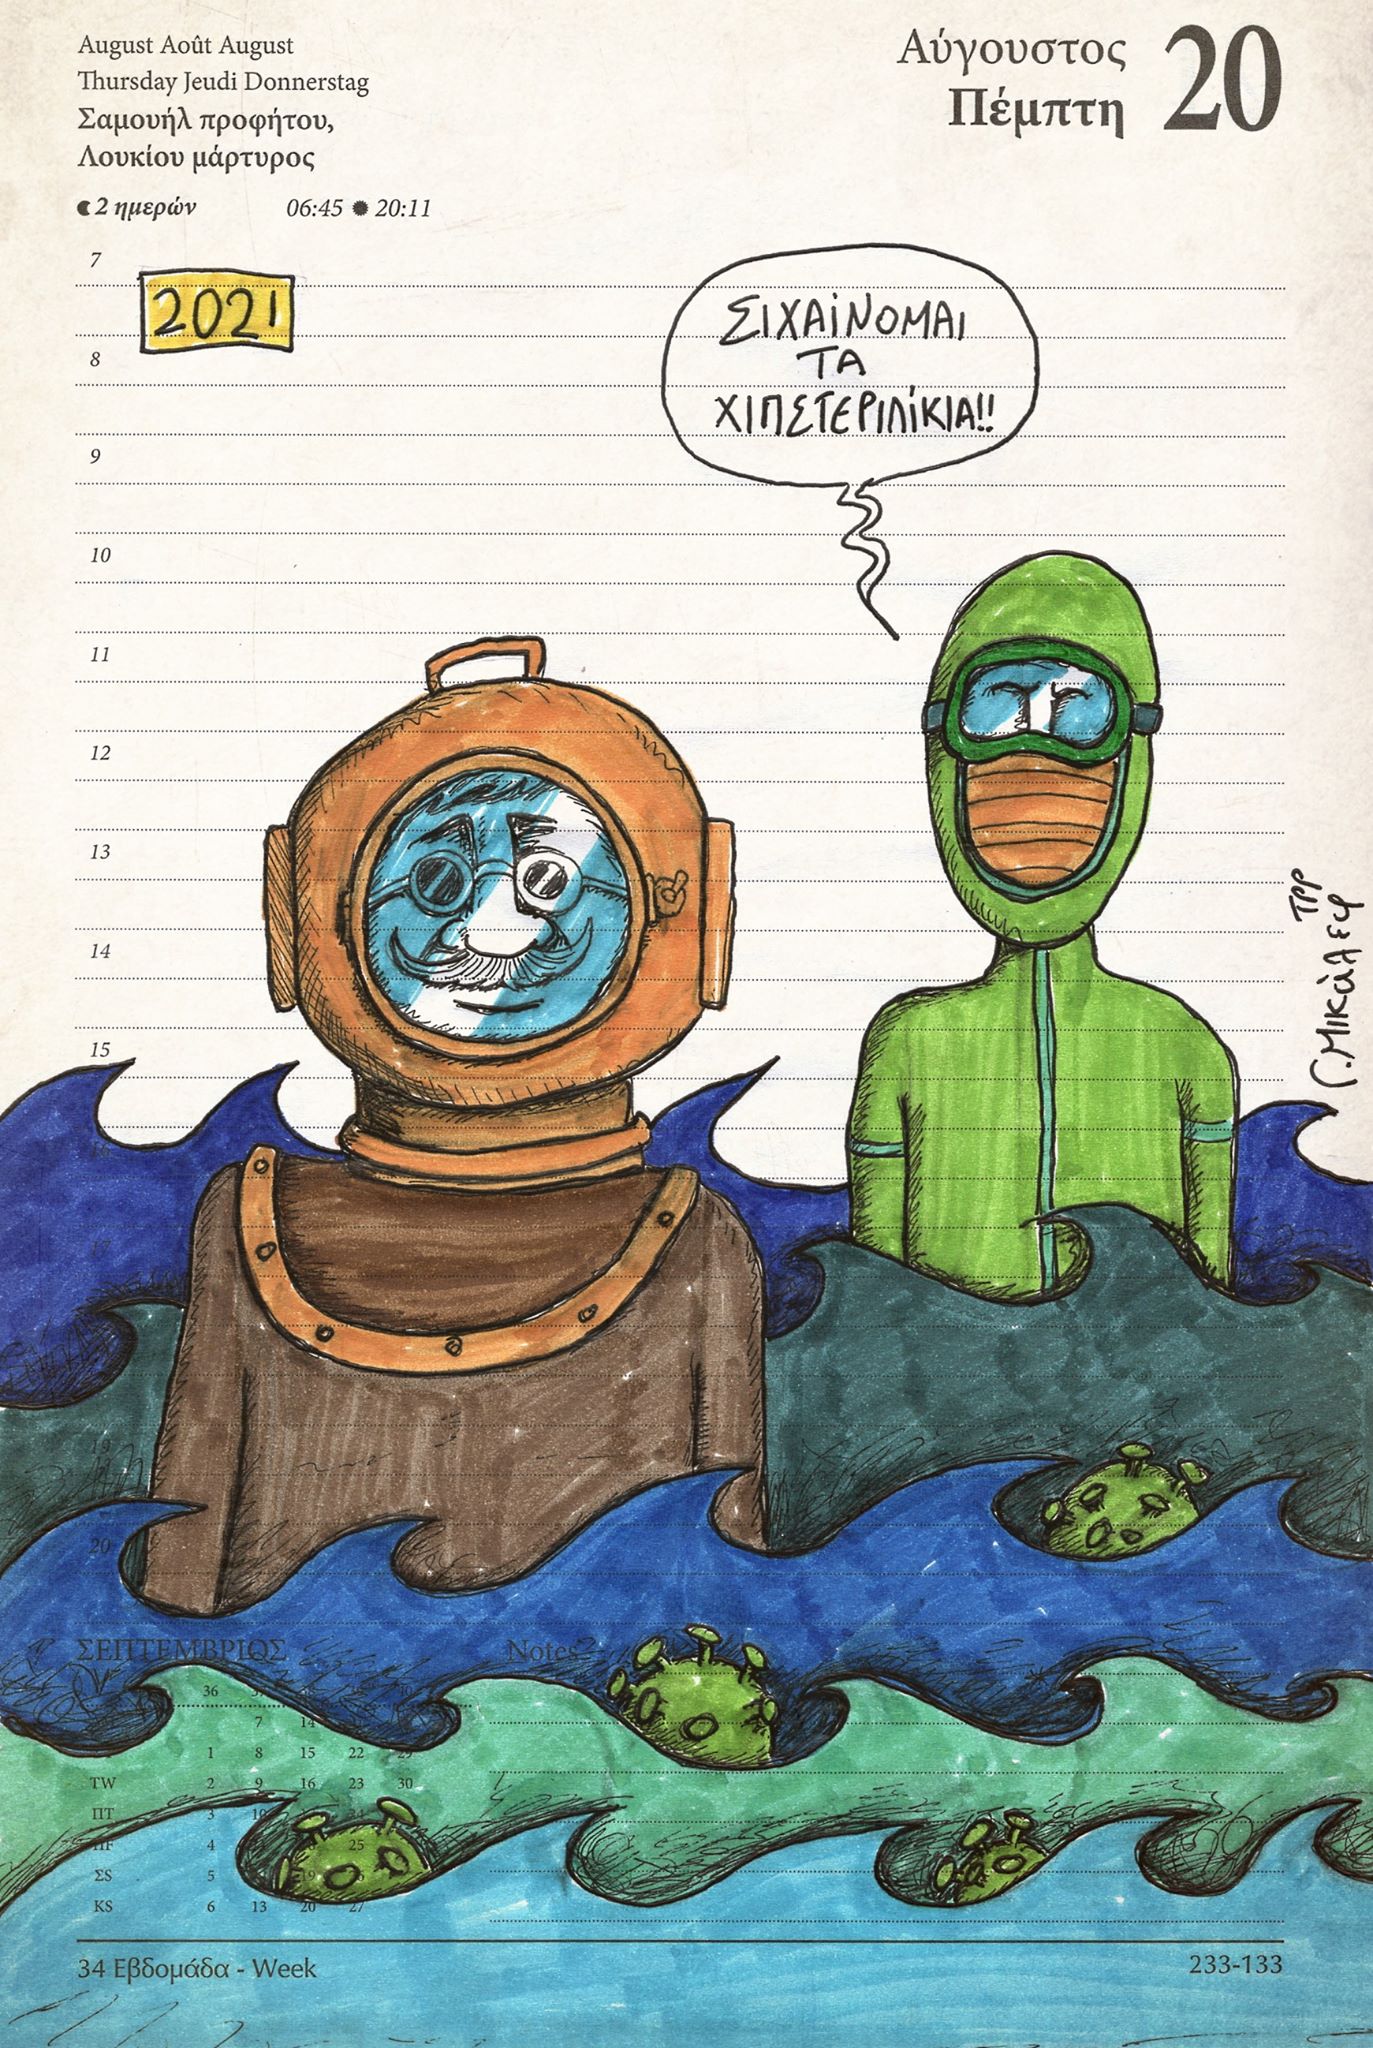 August Août August
Thursday Jeudi Donnerstag
Σαμουήλ προφήτου,
Λουκίου μάρτυρος
2 ημερών 06:45 20:11
Αύγουστος
Πέμπτη
20
7
2021
8
ΣΙΧΑΙΝΟΜΑΙ
ΤΑ
ΧΙΠΣΤΕΡΙΛΙΚΙΑ!!
9
10
11
12
13
14
15
16
17
19
20
Γ. Μικάλεφ
ΣΕΠΤΕΜΒΡΙΟΣ
Notes
36
7 14
1 8 15 22 29
TW 2 9 16 23 30
ΠΤ 3 10 24
ΠF 4 25
ΣS 5 19
KS 6 13 20 27
34 Εβδομάδα - Week
233-133